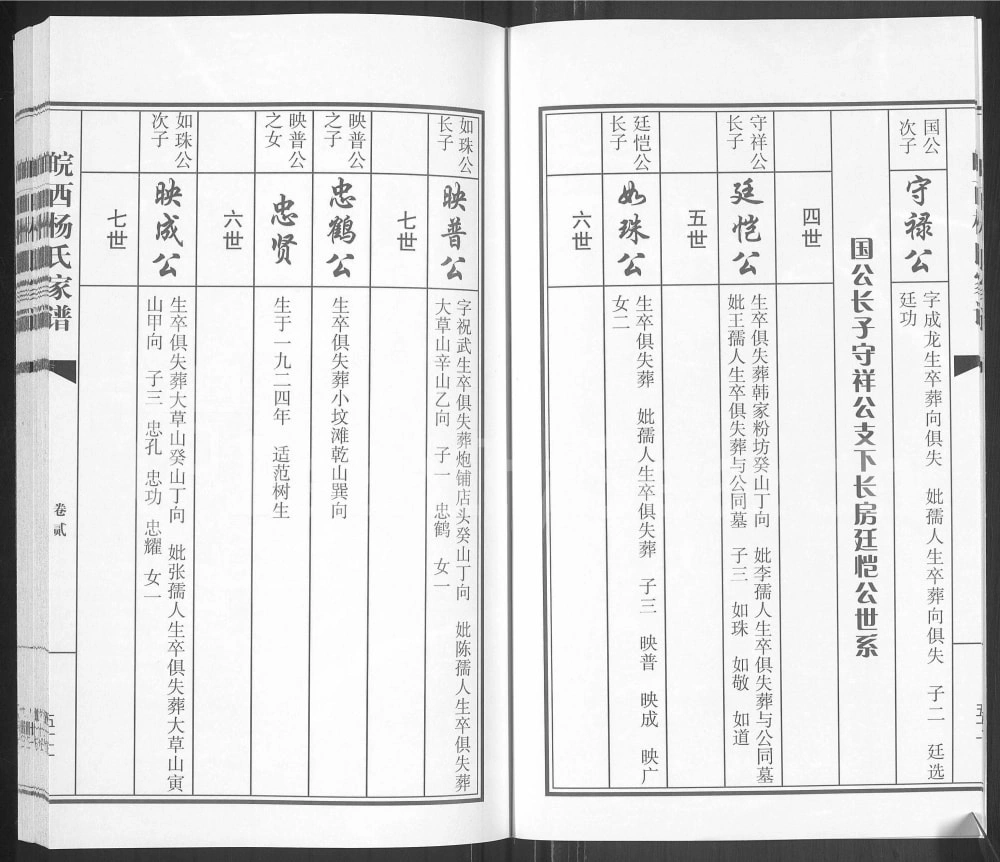 国公
次子
守禄公
字成龙生卒葬向俱失 妣孺人生卒葬向俱失 子二 廷选
廷功
国公长子守祥公支下长房廷恺公世系
四世
守祥公
长子
廷恺公
生卒俱失葬韩家粉坊癸山丁向 妣李孺人生卒俱失葬与公同墓
妣王孺人生卒俱失葬与公同墓 子三 如珠 如敬 如道
五世
廷恺公
长子
如珠公
生卒俱失葬 妣孺人生卒俱失葬 子三 映普 映成 映广
女二
六世
如珠公
长子
映普公
字祝武生卒俱失葬炮铺店头癸山丁向 妣陈孺人生卒俱失葬
大草山辛山乙向 子一 忠鹤 女一
七世
映普公
之子
忠鹤公
生卒俱失葬小坟滩乾山巽向
映普公
之女
忠贤
生于一九二四年 适范树生
六世
如珠公
次子
映成公
生卒俱失葬大草山癸山丁向 妣张孺人生卒俱失葬大草山寅
山甲向 子三 忠孔 忠功 忠耀 女一
七世
皖西杨氏家谱
卷贰